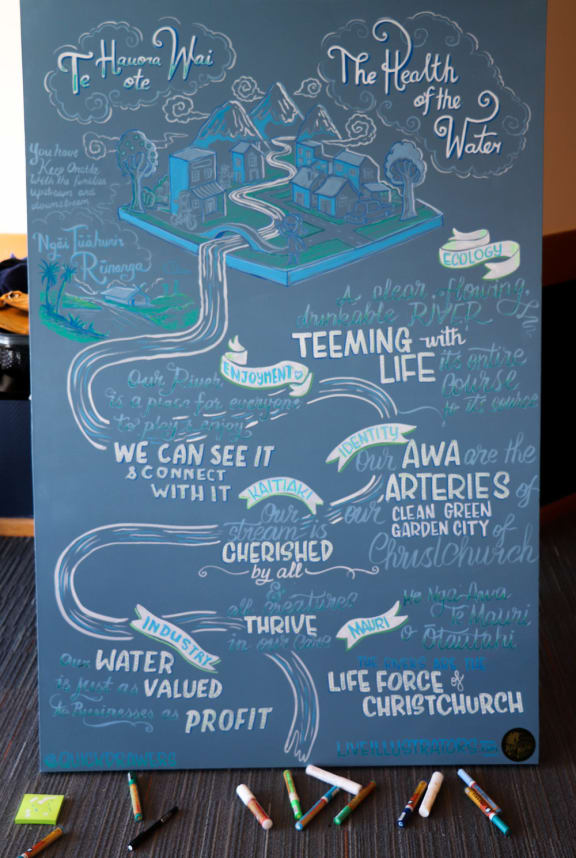 Te Hauora Wai
ote
The Health
of the
Water
You have
Keep Onatte
With the families
upstream and
downstream
Ngāi Tūahuriri
Rūnanga
ECOLOGY
A clear, flowing,
drinkable RIVER
TEEMING with
LIFE its entire
Course
to its source
ENJOYMENT
Our River
is a place for everyone
to play & enjoy
WE CAN SEE IT
& CONNECT
WITH IT
IDENTITY
Our AWA are the
ARTERIES of
our CLEAN GREEN
GARDEN CITY of
Christchurch
KAITIAKI
Our
stream is
CHERISHED
by all
&
all creatures
THRIVE
in our care
MAURI
He Nga Awa
Te Mauri
o Ōtautahi
THE RIVERS ARE THE
LIFE FORCE of
CHRISTCHURCH
INDUSTRY
Our WATER
is just as VALUED
to Businesses as
PROFIT
LIVEILLUSTRATORS.com